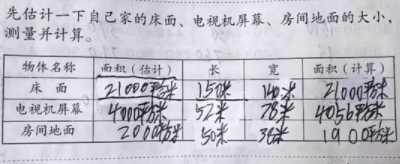 先估计一下自己家的床面、电视机屏幕、房间地面的大小,
测量并计算。
物体名称 面积(估计) 长 宽 面积(计算)
床 面 21000平方米 150米 140米 21000平方米
电视机屏幕 4000平方米 52米 78米 4056平方米
房间地面 2000平方米 50米 38米 1900平方米